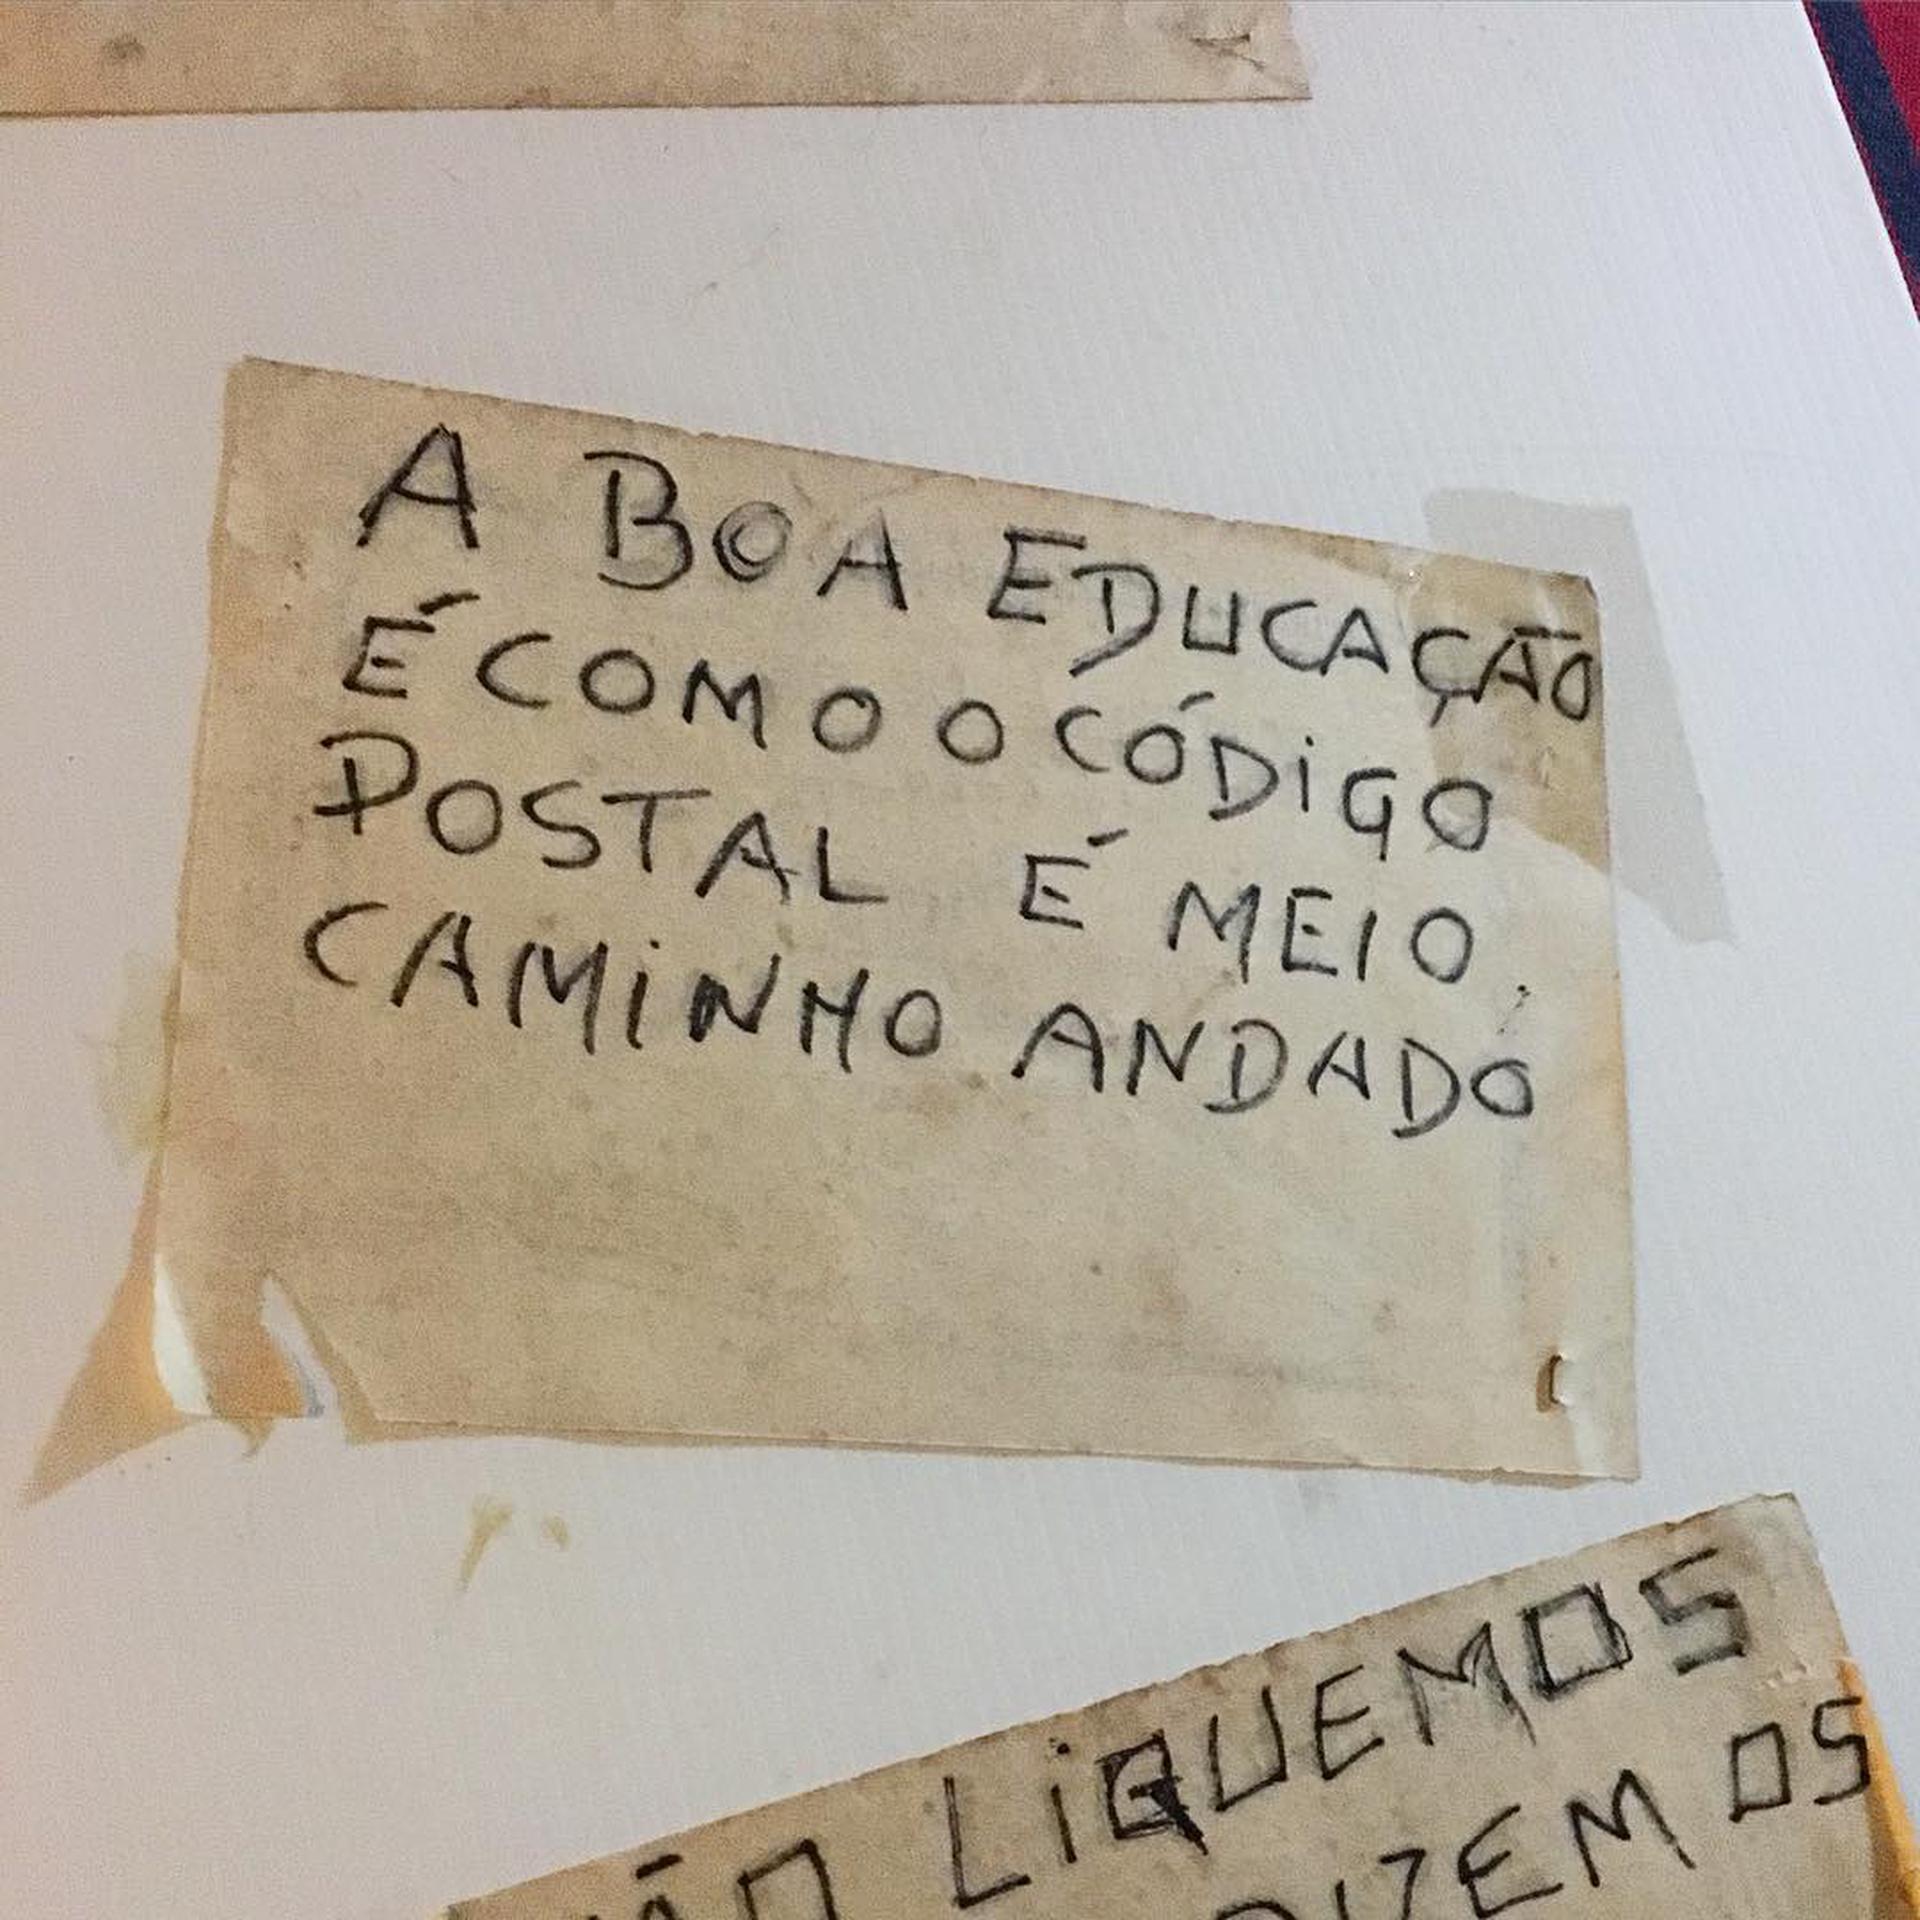 A BOA EDUCAÇÃO
É COMO O CÓDIGO
POSTAL É MEIO
CAMINHO ANDADO
LIGUEMOS